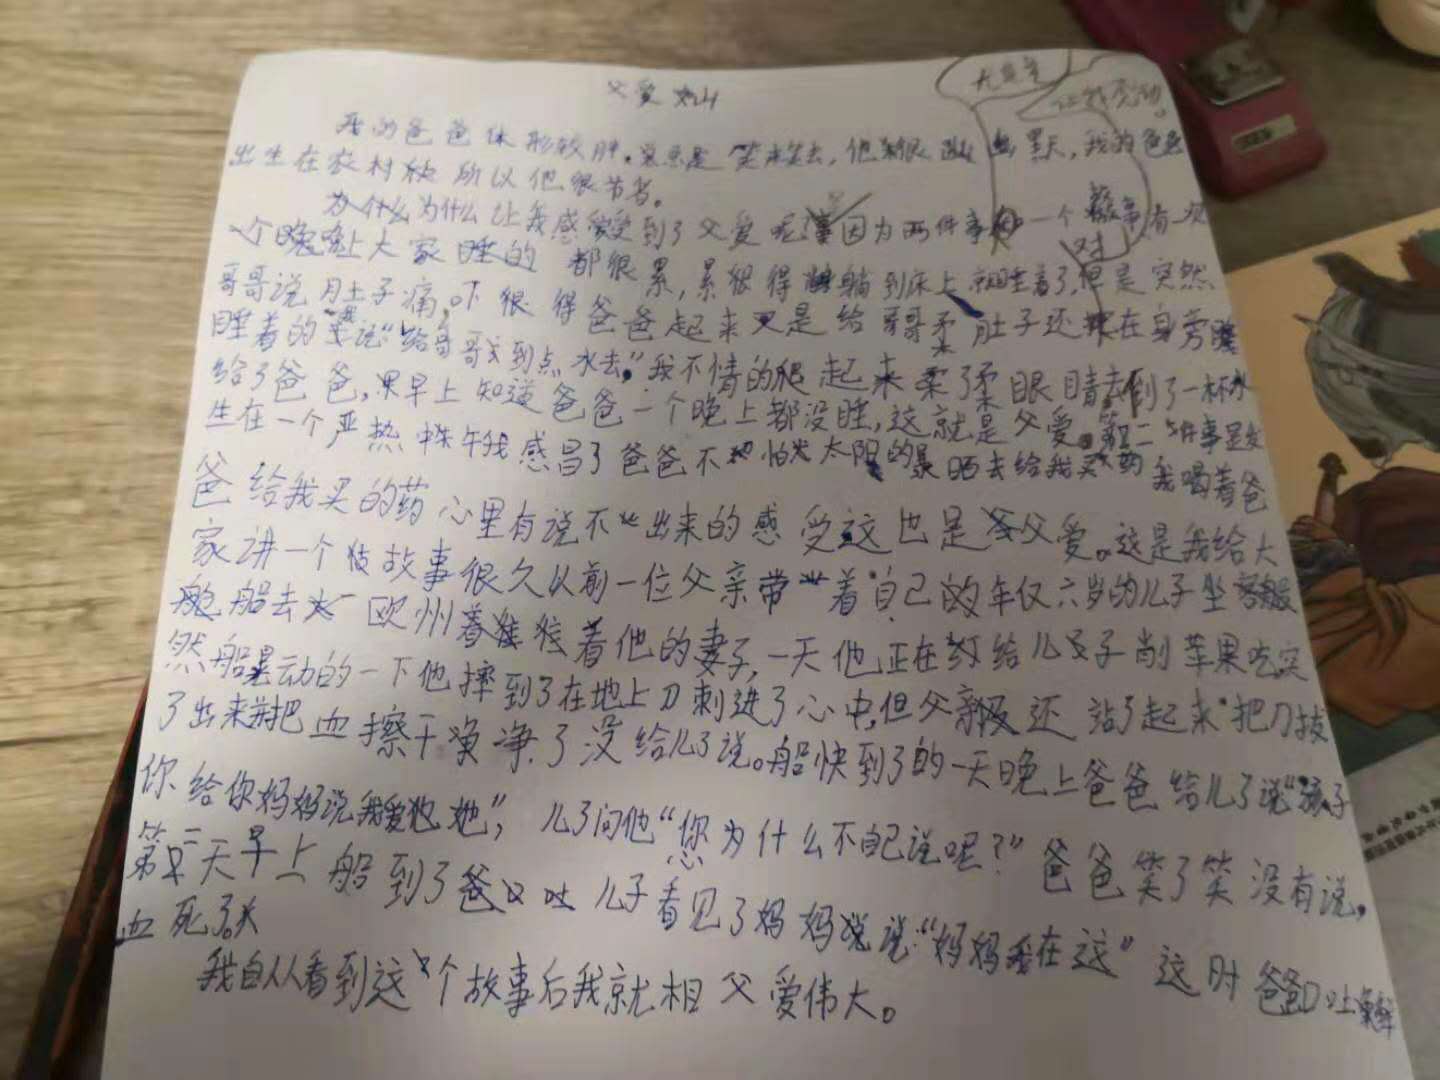 父爱如山
无意中
让我感动。
我的爸爸体形较胖,总是笑来笑去,他很黑,我的爸爸
出生在农村所以他很节省。
为什么为什么让我感受到了父爱呢?因为两件事一个有一次
个晚上大家睡的都很累,累很得躺到床上就睡着了,但是突然
哥哥说肚子痛。吓很得爸爸起来又是给哥哥柔肚子还在身旁
睡着的我说“给哥哥到点水去”我不情的爬起来柔了柔眼睛去倒了一杯水
给了爸爸,果早上知道爸爸一个晚上都没睡,这就是父爱。第二件事是发
生在一个严热中午我感冒了爸爸不怕太阳的暴晒去给我买药我喝着爸
爸给我买的药心里有说不出来的感受这也是父爱。这是我给大
家讲一个故事很久以前一位父亲带着自己的年仅六岁的儿子坐
船去欧州着他的妻子,一天他正在给儿子削苹果吃突
然船晃动的一下他摔到了在地上刀刺进了心中,但父亲还站了起来把刀拔
了出来并把血擦干净了没给儿子说。船快到了的一天晚上爸爸给儿子说“孩子
你给你妈妈说我爱她”,儿子问他“您为什么不自己说呢?”爸爸笑了笑没有说,
第二天早上船到了儿子看见了妈妈说“妈妈我在这”这时爸爸口吐鲜
血死了。
我自从看到这个故事后我就相父爱伟大。